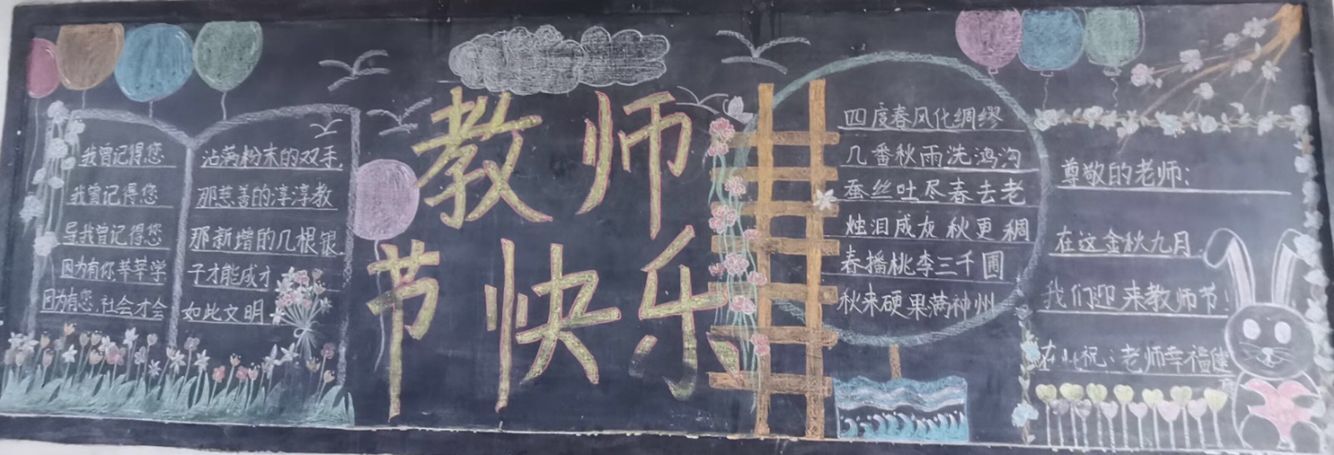 我曾记得您 沾满粉末的双手
我曾记得您 那慈善的淳淳教
导我曾记得您 那新增的几根银
因为有你莘莘学 子才能成才
因为有您社会才会 如此文明
教师
节快乐
四度春风化绸缪
几番秋雨洗鸿沟
蚕丝吐尽春去老
烛泪成灰秋更稠
春播桃李三千圃
秋来硕果满神州
尊敬的老师:
在这金秋九月
我们迎来教师节!
祝:老师幸福健